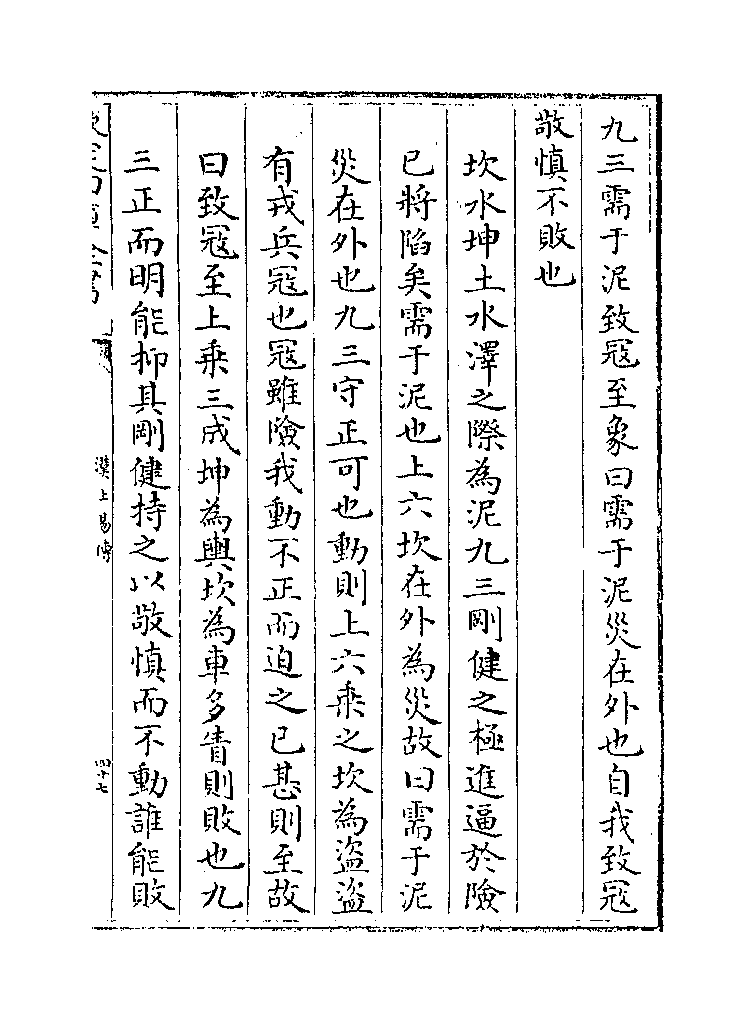 九三需于泥致冦至象曰需于泥災在外也自我致冦
敬慎不敗也
坎水坤土水澤之際為泥九三剛健之極進逼於險
已將陷矣需于泥也上六坎在外為災故曰需于泥
災在外也九三守正可也動則上六乘之坎為盜盜
有戎兵冦也冦雖險我動不正而迫之已甚則至故
曰致冦至上乘三成坤為輿坎為車多眚則敗也九
三正而明能抑其剛健持之以敬慎而不動誰能敗
漢上易傳
四十七